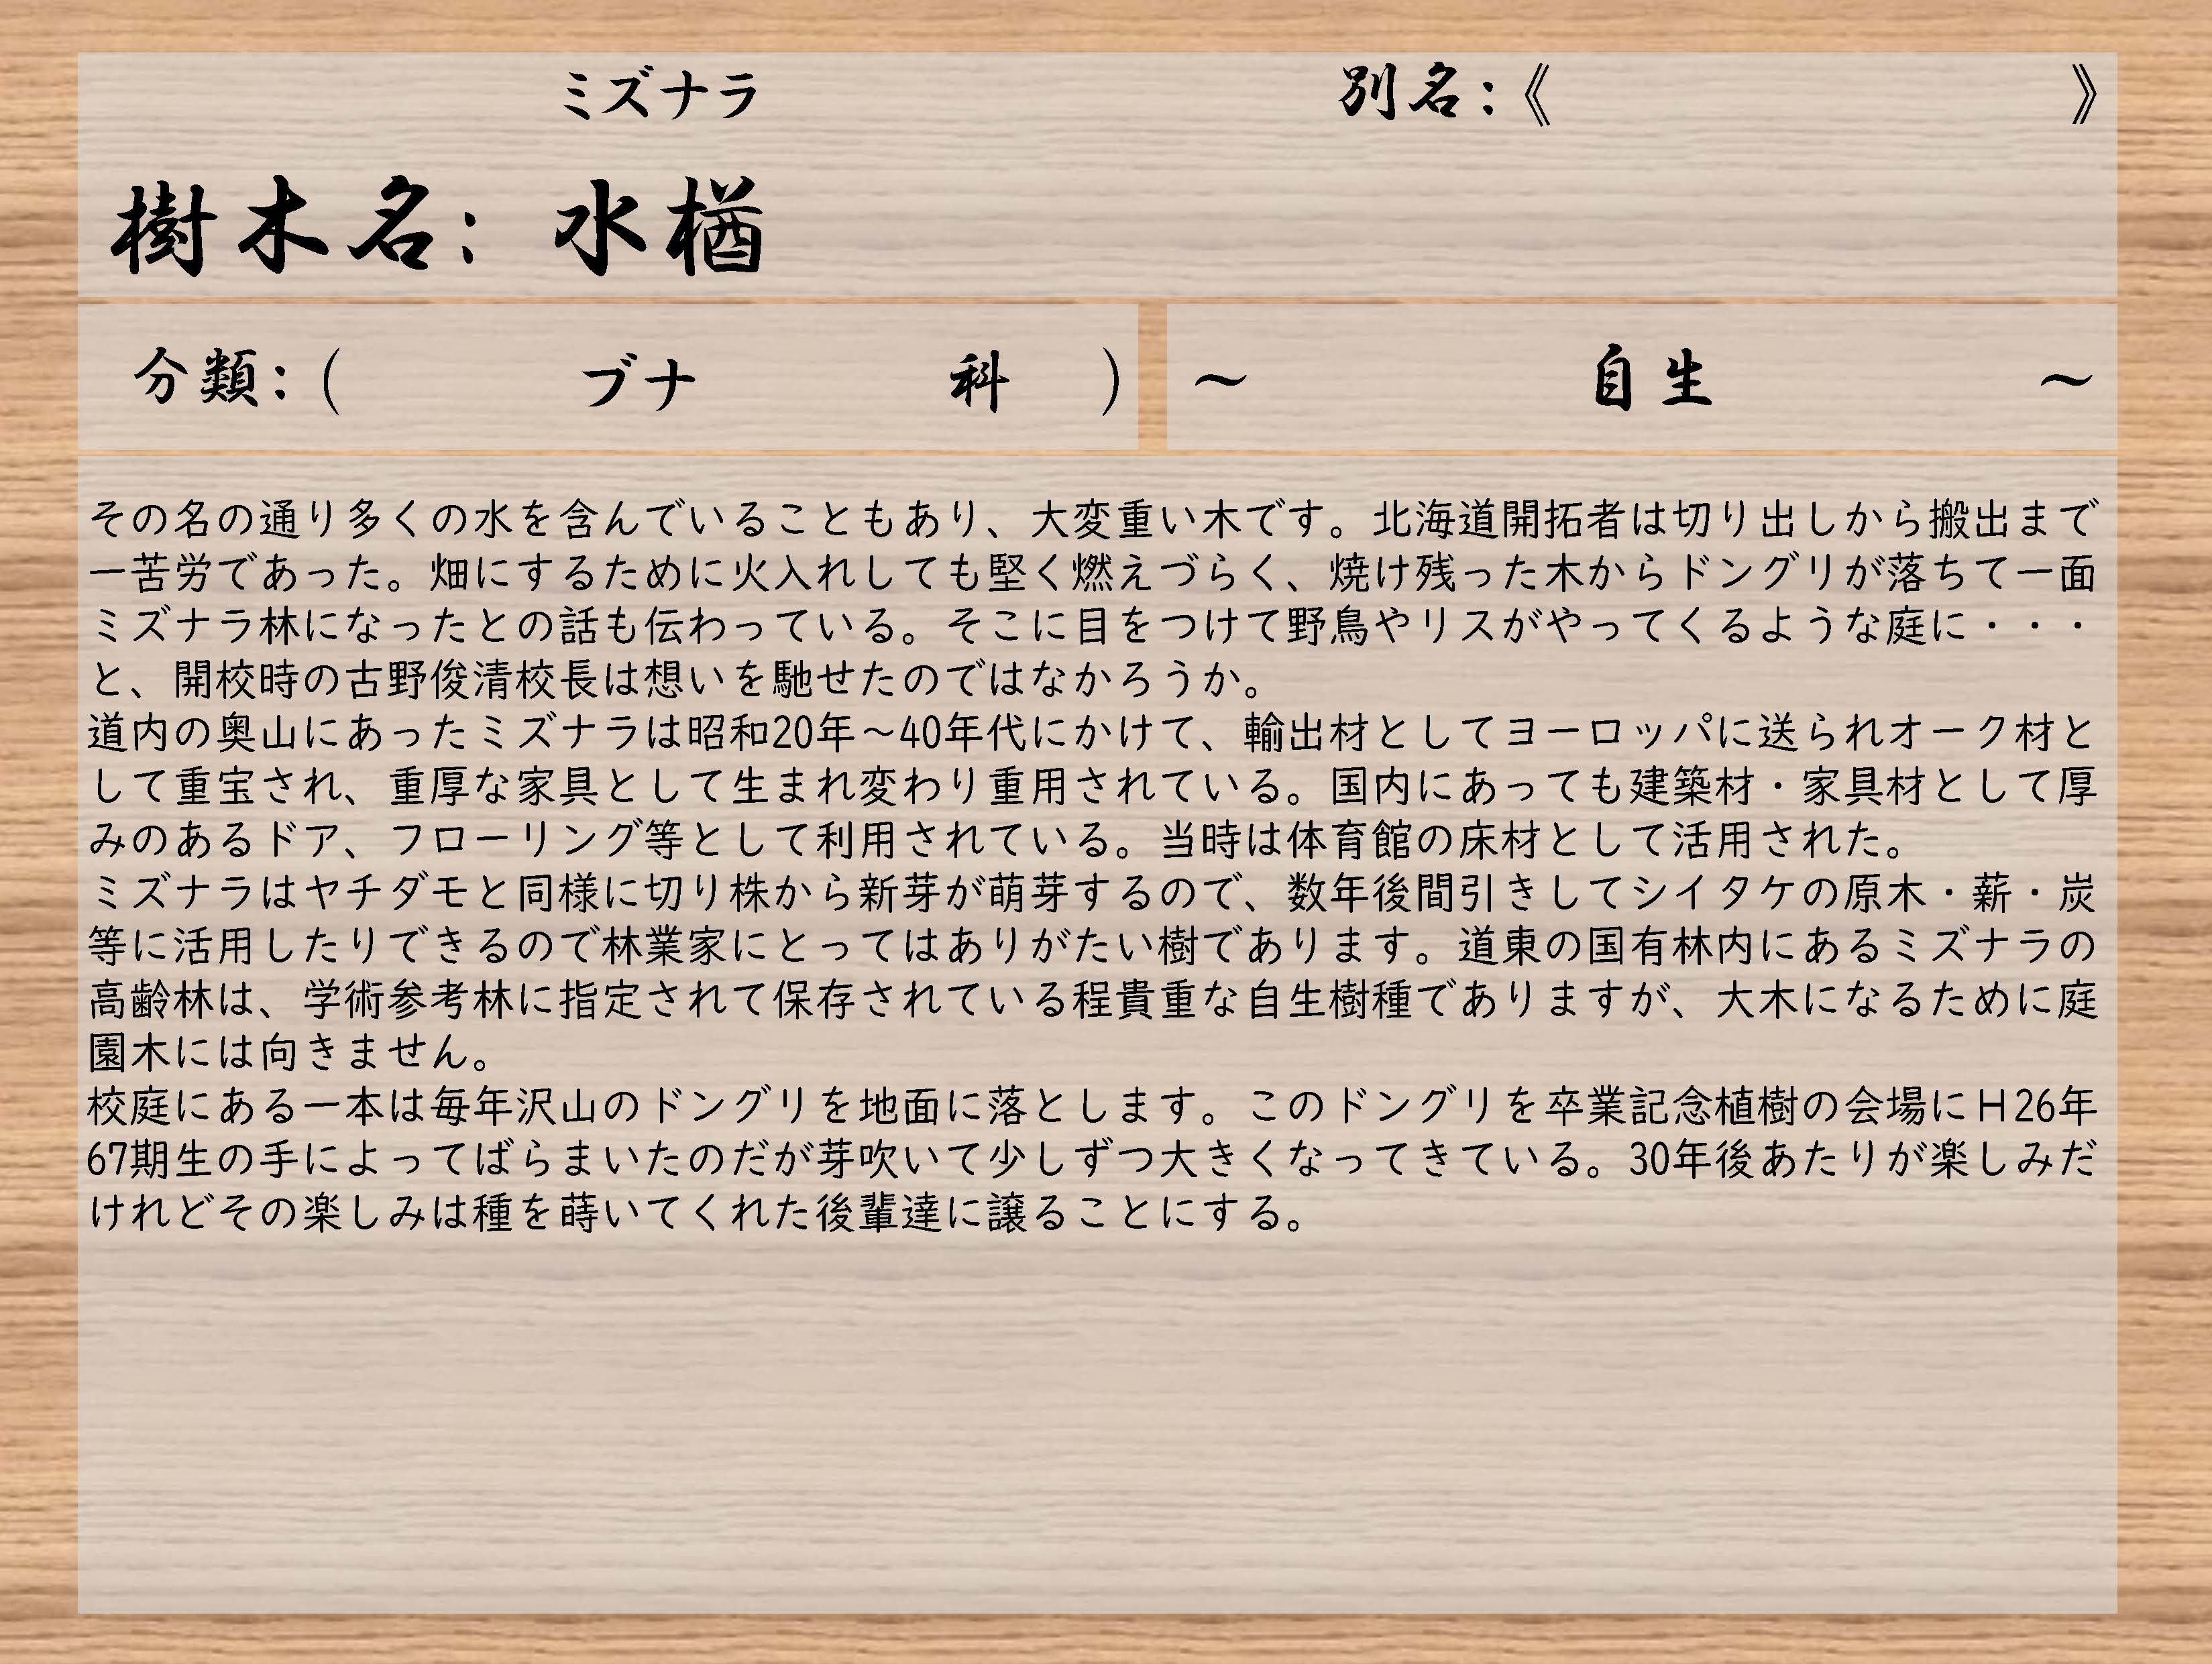 ミズナラ 別名：《 》
樹木名：水楢
分類：（ ブナ 科 ） ～ 自生 ～
その名の通り多くの水を含んでいることもあり、大変重い木です。北海道開拓者は切り出しから搬出まで
一苦労であった。畑にするために火入れしても堅く燃えづらく、焼け残った木からドングリが落ちて一面
ミズナラ林になったとの話も伝わっている。そこに目をつけて野鳥やリスがやってくるような庭に・・・
と、開校時の古野俊清校長は想いを馳せたのではなかろうか。
道内の奥山にあったミズナラは昭和20年～40年代にかけて、輸出材としてヨーロッパに送られオーク材と
して重宝され、重厚な家具として生まれ変わり重用されている。国内にあっても建築材・家具材として厚
みのあるドア、フローリング等として利用されている。当時は体育館の床材として活用された。
ミズナラはヤチダモと同様に切り株から新芽が萌芽するので、数年後間引きしてシイタケの原木・薪・炭
等に活用したりできるので林業家にとってはありがたい樹であります。道東の国有林内にあるミズナラの
高齢林は、学術参考林に指定されて保存されている程貴重な自生樹種でありますが、大木になるために庭
園木には向きません。
校庭にある一本は毎年沢山のドングリを地面に落とします。このドングリを卒業記念植樹の会場にＨ26年
67期生の手によってばらまいたのだが芽吹いて少しずつ大きくなってきている。30年後あたりが楽しみだ
けれどその楽しみは種を蒔いてくれた後輩達に譲ることにする。